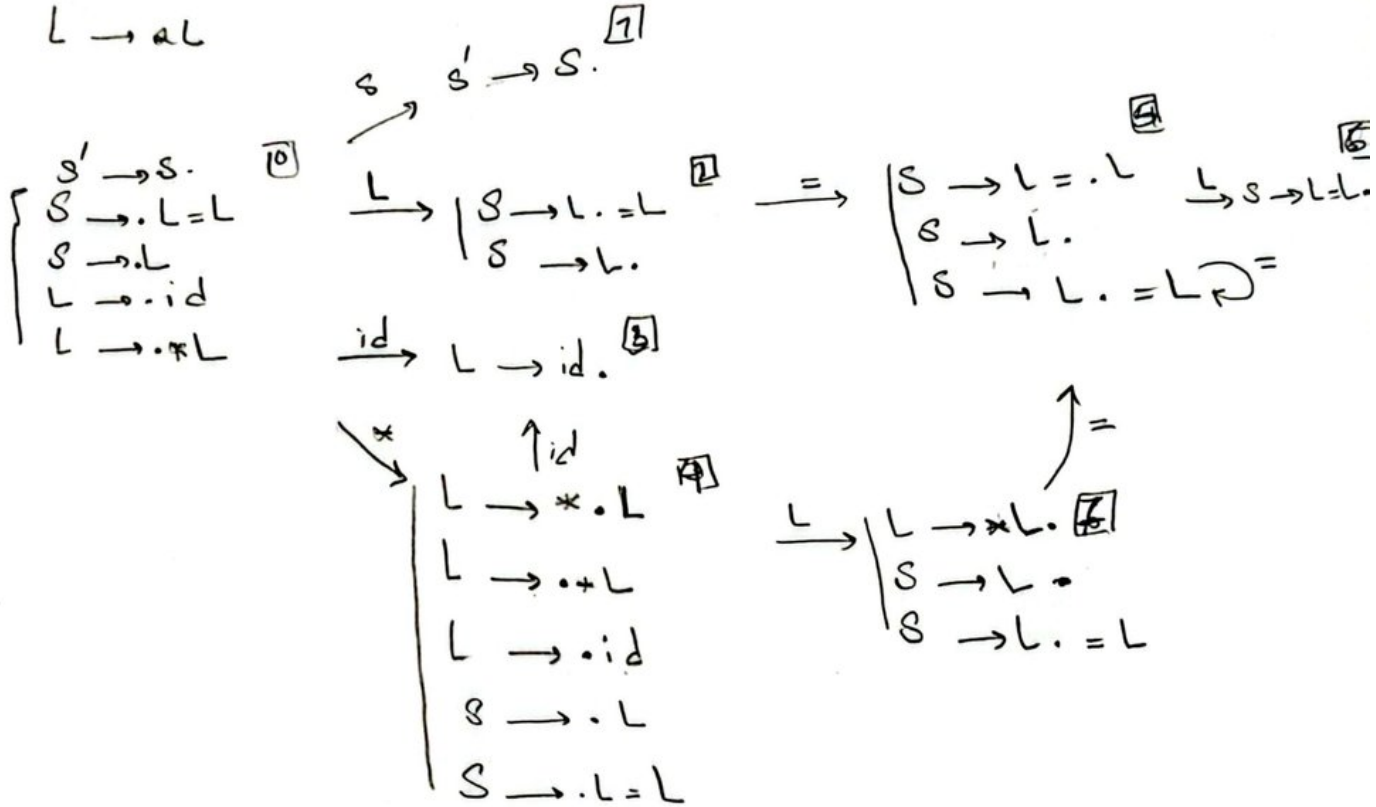 L → aL
S
S' → S. 1
S' → S. 0
S → .L=L
S → .L
L → .id
L → .*L
L
S → L. =L 2
S → L.
=
S → L = .L
S → L.
S → L. = L =
L
S → L=L.
id
L → id. 3
*
id
L → *.L 4
L → .*L
L → .id
S → .L
S → .L=L
L
=
L → *L.
S → L.
S → L. = L